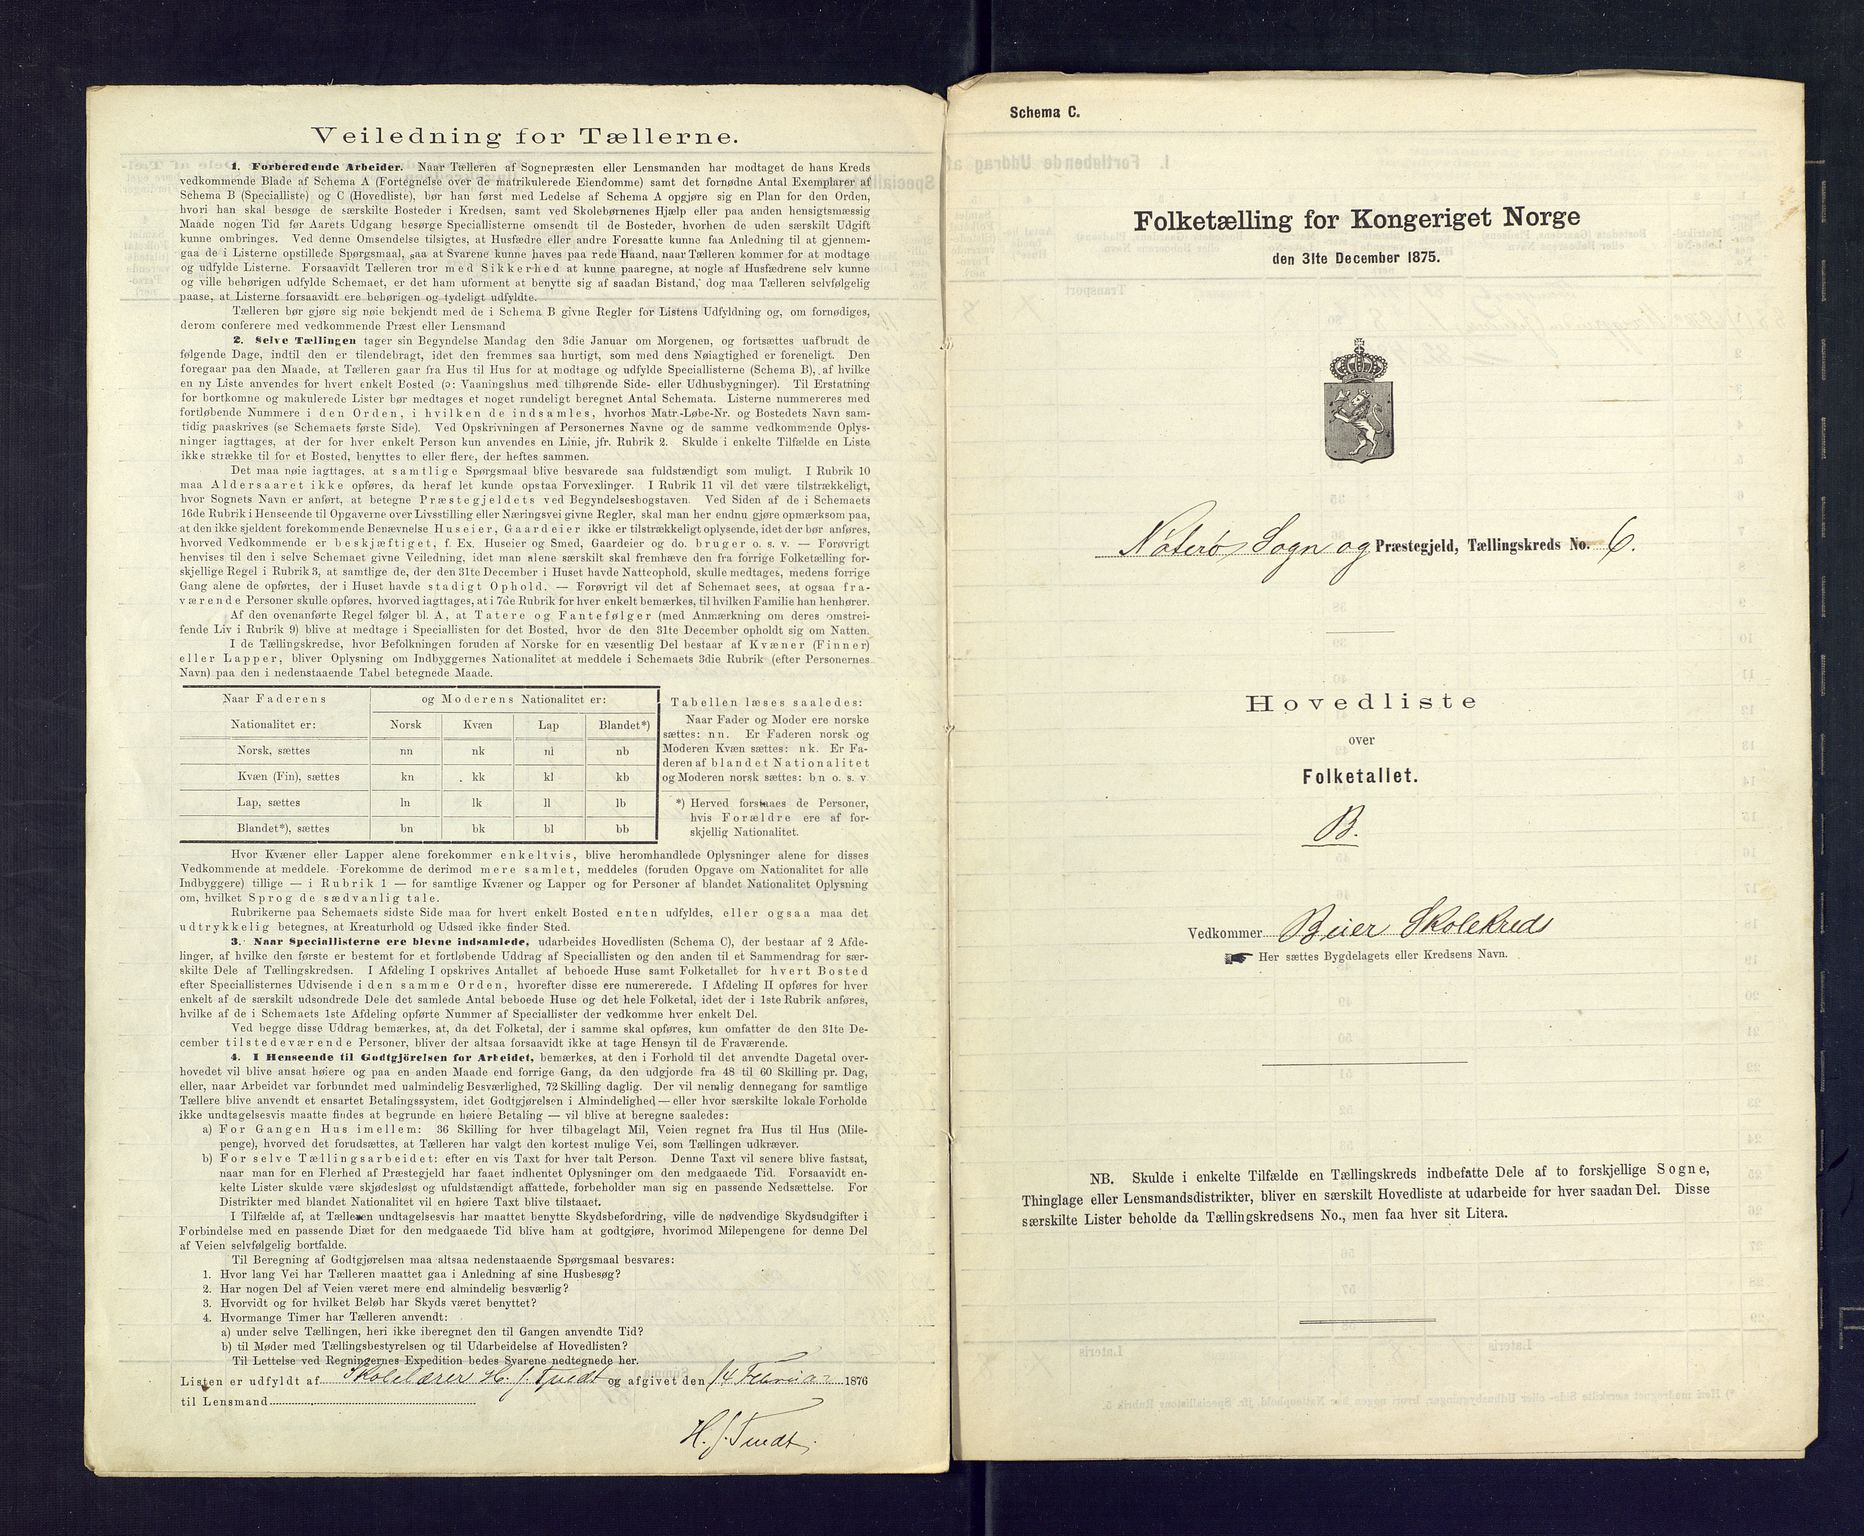 Veiledning for Tællerne.
1. Forberedende Arbeider. Naar Tælleren af Sognepræsten eller Lensmanden har modtaget de hans Kreds
vedkommende Blade af Schema A (Fortegnelse over de matrikulerede Eiendomme) samt det fornødne Antal Exemplarer af
Schema B (Specialliste) og C (Hovedliste), bør han først med Ledelse af Schema A opgjøre sig en Plan for den Orden,
hvori han skal besøge de særskilte Bosteder i Kredsen, samt ved Skolebørnenes Hjælp eller paa anden hensigtsmæssig
Maade nogen Tid før Aarets Udgang besørge Speciallisterne omsendt til de Bosteder, hvorhen de uden særskilt Udgift
kunne ombringes. Ved denne Omsendelse tilsigtes, at Husfædre eller andre Foresatte kunne faa Anledning til at gjennem-
gaa de i Listerne opstillede Spørgsmaal, saa at Svarene kunne haves paa rede Haand, naar Tælleren kommer for at modtage
og udfylde Listerne. Forsaavidt Tælleren tror med Sikkerhed at kunne paaregne, at nogle af Husfædrene selv kunne
og ville behørigen udfylde Schemaet, er det ham uforment at benytte sig af saadan Bistand, dog maa Tælleren selvfølgelig
paase, at Listerne forsaavidt ere behørigen og tydeligt udfyldte.
Tælleren bør gjøre sig nøie bekjendt med de i Schema B givne Regler for Listens Udfyldning og, om fornødiges,
derom conferere med vedkommende Præst eller Lensmand
2. Selve Tællingen tager sin Begyndelse Mandag den 3die Januar om Morgenen, og fortsættes uafbrudt de
følgende Dage, indtil den er tilendebragt, idet den fremmes saa hurtigt, som med dens Nøiagtighed er foreneligt. Den
foregaar paa den Maade, at Tælleren gaar fra Hus til Hus for at modtage og udfylde Speciallisterne (Schema B), af hvilke
en ny Liste anvendes for hvert enkelt Bosted (ɔ: Vaaningshus med tilhørende Side- eller Udhusbygninger). Til Erstatning
for bortkomne og makulerede Lister bør medtages et noget rundeligt beregnet Antal Schemata. Listerne nummereres med
fortløbende Nummere i den Orden, i hvilken de indsamles, hvorhos Matr.-Løbe-Nr. og Bostedets Navn sam-
tidig paaskrives (se Schemaets første Side). Ved Opskrivningen af Personernes Navne og de samme vedkommende Oplys-
ninger iagttages, at der for hver enkelt Person kun anvendes en Linie, jfr. Rubrik 2. Skulde i enkelte Tilfælde en Liste
ikke strække til for et Bosted, benyttes to eller flere, der heftes sammen.
Det maa nøie iagttages, at samtlige Spørgsmaal blive besvarede saa fuldstændigt som muligt. I Rubrik 10
maa Aldersaaret ikke opføres, da heraf let kunde opstaa Forvexlinger. I Rubrik 11 vil det være tilstrækkeligt,
hvor Sognets Navn er anført, at betegne Præstegjeldets ved Begyndelsesbogstaven. Ved Siden af de i Schemaets
16de Rubrik i Henseende til Opgaverne over Livsstilling eller Næringsvei givne Regler, skal man her endnu gjøre opmærksom paa,
at den ikke sjeldent forekommende Benævnelse Huseier, Gaardeier ikke er tilstrækkeligt oplysende, idet der bør anføres,
hvorved Vedkommende er beskjæftiget, f. Ex. Huseier og Smed, Gaardeier og do. bruger o. s. v. — Forøvrigt
henvises til den i selve Schemaet givne Veiledning, idet man alene særskilt skal fremhæve den fra forrige Folketælling for-
skjellige Regel i Rubrik 3, at samtlige de, der den 31te December i Huset havde Natteophold, skulle medtages, medens forrige
Gang alene de opførtes, der i Huset havde stadigt Ophold. — Forøvrigt vil det af Schemaet sees, at ogsaa fra-
værende Personer skulle opføres, hvorved iagttages, at i 7de Rubrik for hver enkelt bemærkes, til hvilken Familie han henhører.
Af den ovenanførte Regel følger bl. A., at Tatere og Fantefølger (med Anmærkning om deres omstrei-
fende Liv i Rubrik 9) blive at medtage i Speciallisten for det Bosted, hvor de den 31te December opholdt sig om Natten.
I de Tællingskredse, hvor Befolkningen foruden af Norske for en væsentlig Del bestaar af Kvæner (Finner)
eller Lapper, bliver Oplysning om Indbyggernes Nationalitet at meddele i Schemaets 3die Rubrik (efter Personernes
Navn) paa den i nedenstaaende Tabel betegnede Maade.
Naar Faderens og Moderens Nationalitet er:
Nationalitet er: Norsk Kvæn Lap Blandet*)
Norsk, sættes nn nk nl nb
Kvæn (Fin), sættes kn kk kl kb
Lap, sættes ln lk ll lb
Blandet*), sættes bn bk bl bb
Tabellen læses saaledes:
Naar Fader og Moder ere norske
sættes: nn. Er Faderen norsk og
Moderen Kvæn sættes: nk. Er Fa-
deren af blandet Nationalitet
og Moderen norsk sættes: bn o. s. v
*) Herved forstaaes de Personer,
hvis Forældre ere af for-
skjellig Nationalitet.
Hvor Kvæner eller Lapper alene forekommer enkeltvis, blive heromhandlede Oplysninger alene for disses
Vedkommende at meddele. Forekomme de derimod mere samlet, meddeles (foruden Opgave om Nationalitet for alle
Indbyggere) tillige — i Rubrik 1 — for samtlige Kvæner og Lapper og for Personer af blandet Nationalitet Oplysning
om, hvilket Sprog de sædvanlig tale.
Rubrikerne paa Schemaets sidste Side maa for hvert enkelt Bosted enten udfyldes, eller ogsaa maa det
udtrykkelig betegnes, at Kreaturhold og Udsæd ikke finder Sted.
3. Naar Speciallisterne ere blevne indsamlede, udarbeides Hovedlisten (Schema C), der bestaar af 2 Afde-
linger, af hvilke den første er bestemt for et fortløbende Uddrag af Speciallisten og den anden til et Sammendrag for sær-
skilte Dele af Tællingskredsen. I Afdeling I opskrives Antallet af beboede Huse samt Folketallet for hvert Bosted
efter Speciallisternes Udvisende i den samme Orden, hvorefter disse ere numererede. I Afdeling II opføres for hver
enkelt af de særskilt udsondrede Dele det samlede Antal beboede Huse og det hele Folketal, idet der i 1ste Rubrik anføres,
hvilke af de i Schemaets 1ste Afdeling opførte Nummer af Speciallister der vedkomme hver enkelt Del.
Ved begge disse Uddrag bemærkes, at, da det Folketal, der i samme skal opføres, kun omfatter de den 31te De-
cember tilstedeværende Personer, bliver der altsaa forsaavidt ikke at tage Hensyn til de Fraværende.
4. I Henseende til Godtgjörelsen for Arbeidet, bemærkes, at den i Forhold til det anvendte Dagetal over-
hovedet vil blive ansat høiere og paa en anden Maade end forrige Gang, da den udgjorde fra 48 til 60 Skilling pr. Dag,
eller, naar Arbeidet var forbundet med ualmindelig Besværlighed, 72 Skilling daglig. Der vil nemlig dennegang for samtlige
Tællere blive anvendt et ensartet Betalingssystem, idet Godtgjørelsen i Almindelighed — eller hvor særskilte lokale Forholde
ikke undtagelsesvis maatte findes at begrunde en høiere Betaling — vil blive at beregne saaledes:
a) For Gangen Hus imellem: 36 Skilling for hver tilbagelagt Mil, Veien regnet fra Hus til Hus (Mile-
penge), hvorved det forudsættes, at Tælleren har valgt den kortest mulige Vei, som Tællingen udkræver.
b) For selve Tællingsarbeidet: efter en vis Taxt for hver talt Person. Denne Taxt vil senere blive fastsat,
naar man for en Flerhed af Præstegjeld har faaet indhentet Oplysninger om den medgaaede Tid. Forsaavidt en-
kelte Lister skulde være skjødesløst og ufuldstændigt affattede, forbeholder man sig en passende Nedsættelse. For
Distrikter med blandet Nationalitet vil en høiere Taxt blive tilstaaet.
I Tilfælde af, at Tælleren undtagelsesvis har maattet benytte Skydsbefordring, ville de nødvendige Skydsudgifter i
Forbindelse med en passende Diæt for den medgaaede Tid blive ham at godtgjøre, hvorimod Milepengene for denne Del
af Veien selvfølgelig bortfalde.
Til Beregning af Godtgjørelsen maa altsaa nedenstaaende Spørgsmaal besvares:
1. Hvor lang Vei har Tælleren maattet gaa i Anledning af sine Husbesøg?
2. Har nogen Del af Veien været mere end almindelig besværlig?
3. Hvorvidt og for hvilket Beløb har Skyds været benyttet?
4. Hvormange Timer har Tælleren anvendt:
a) under selve Tællingen, heri ikke iberegnet den til Gangen anvendte Tid?
b) til Møder med Tællingsbestyrelsen og til Udarbeidelse af Hovedlisten?
Til Lettelse ved Regningernes Expedition bedes Svarene nedtegnede her.
Listen er udfyldt af Skolelærer H. J. Tvedt og afgivet den 14 Februar 1876
til Lensmand
H. J. Tvedt.
Schema C.
Folketælling for Kongeriget Norge
den 31te December 1875.
Nøterø Sogn og Præstegjeld, Tællingskreds No. 6.
Hovedliste
over
Folketallet.
B.
Vedkommer Beier Skolekreds
Her sættes Bygdelagets eller Kredsens Navn.
NB. Skulde i enkelte Tilfælde en Tællingskreds indbefatte Dele af to forskjellige Sogne,
Thinglage eller Lensmandsdistrikter, bliver en særskilt Hovedliste at udarbeide for hver saadan Del. Disse
særskilte Lister beholde da Tællingskredsens No., men faa hver sit Litera.